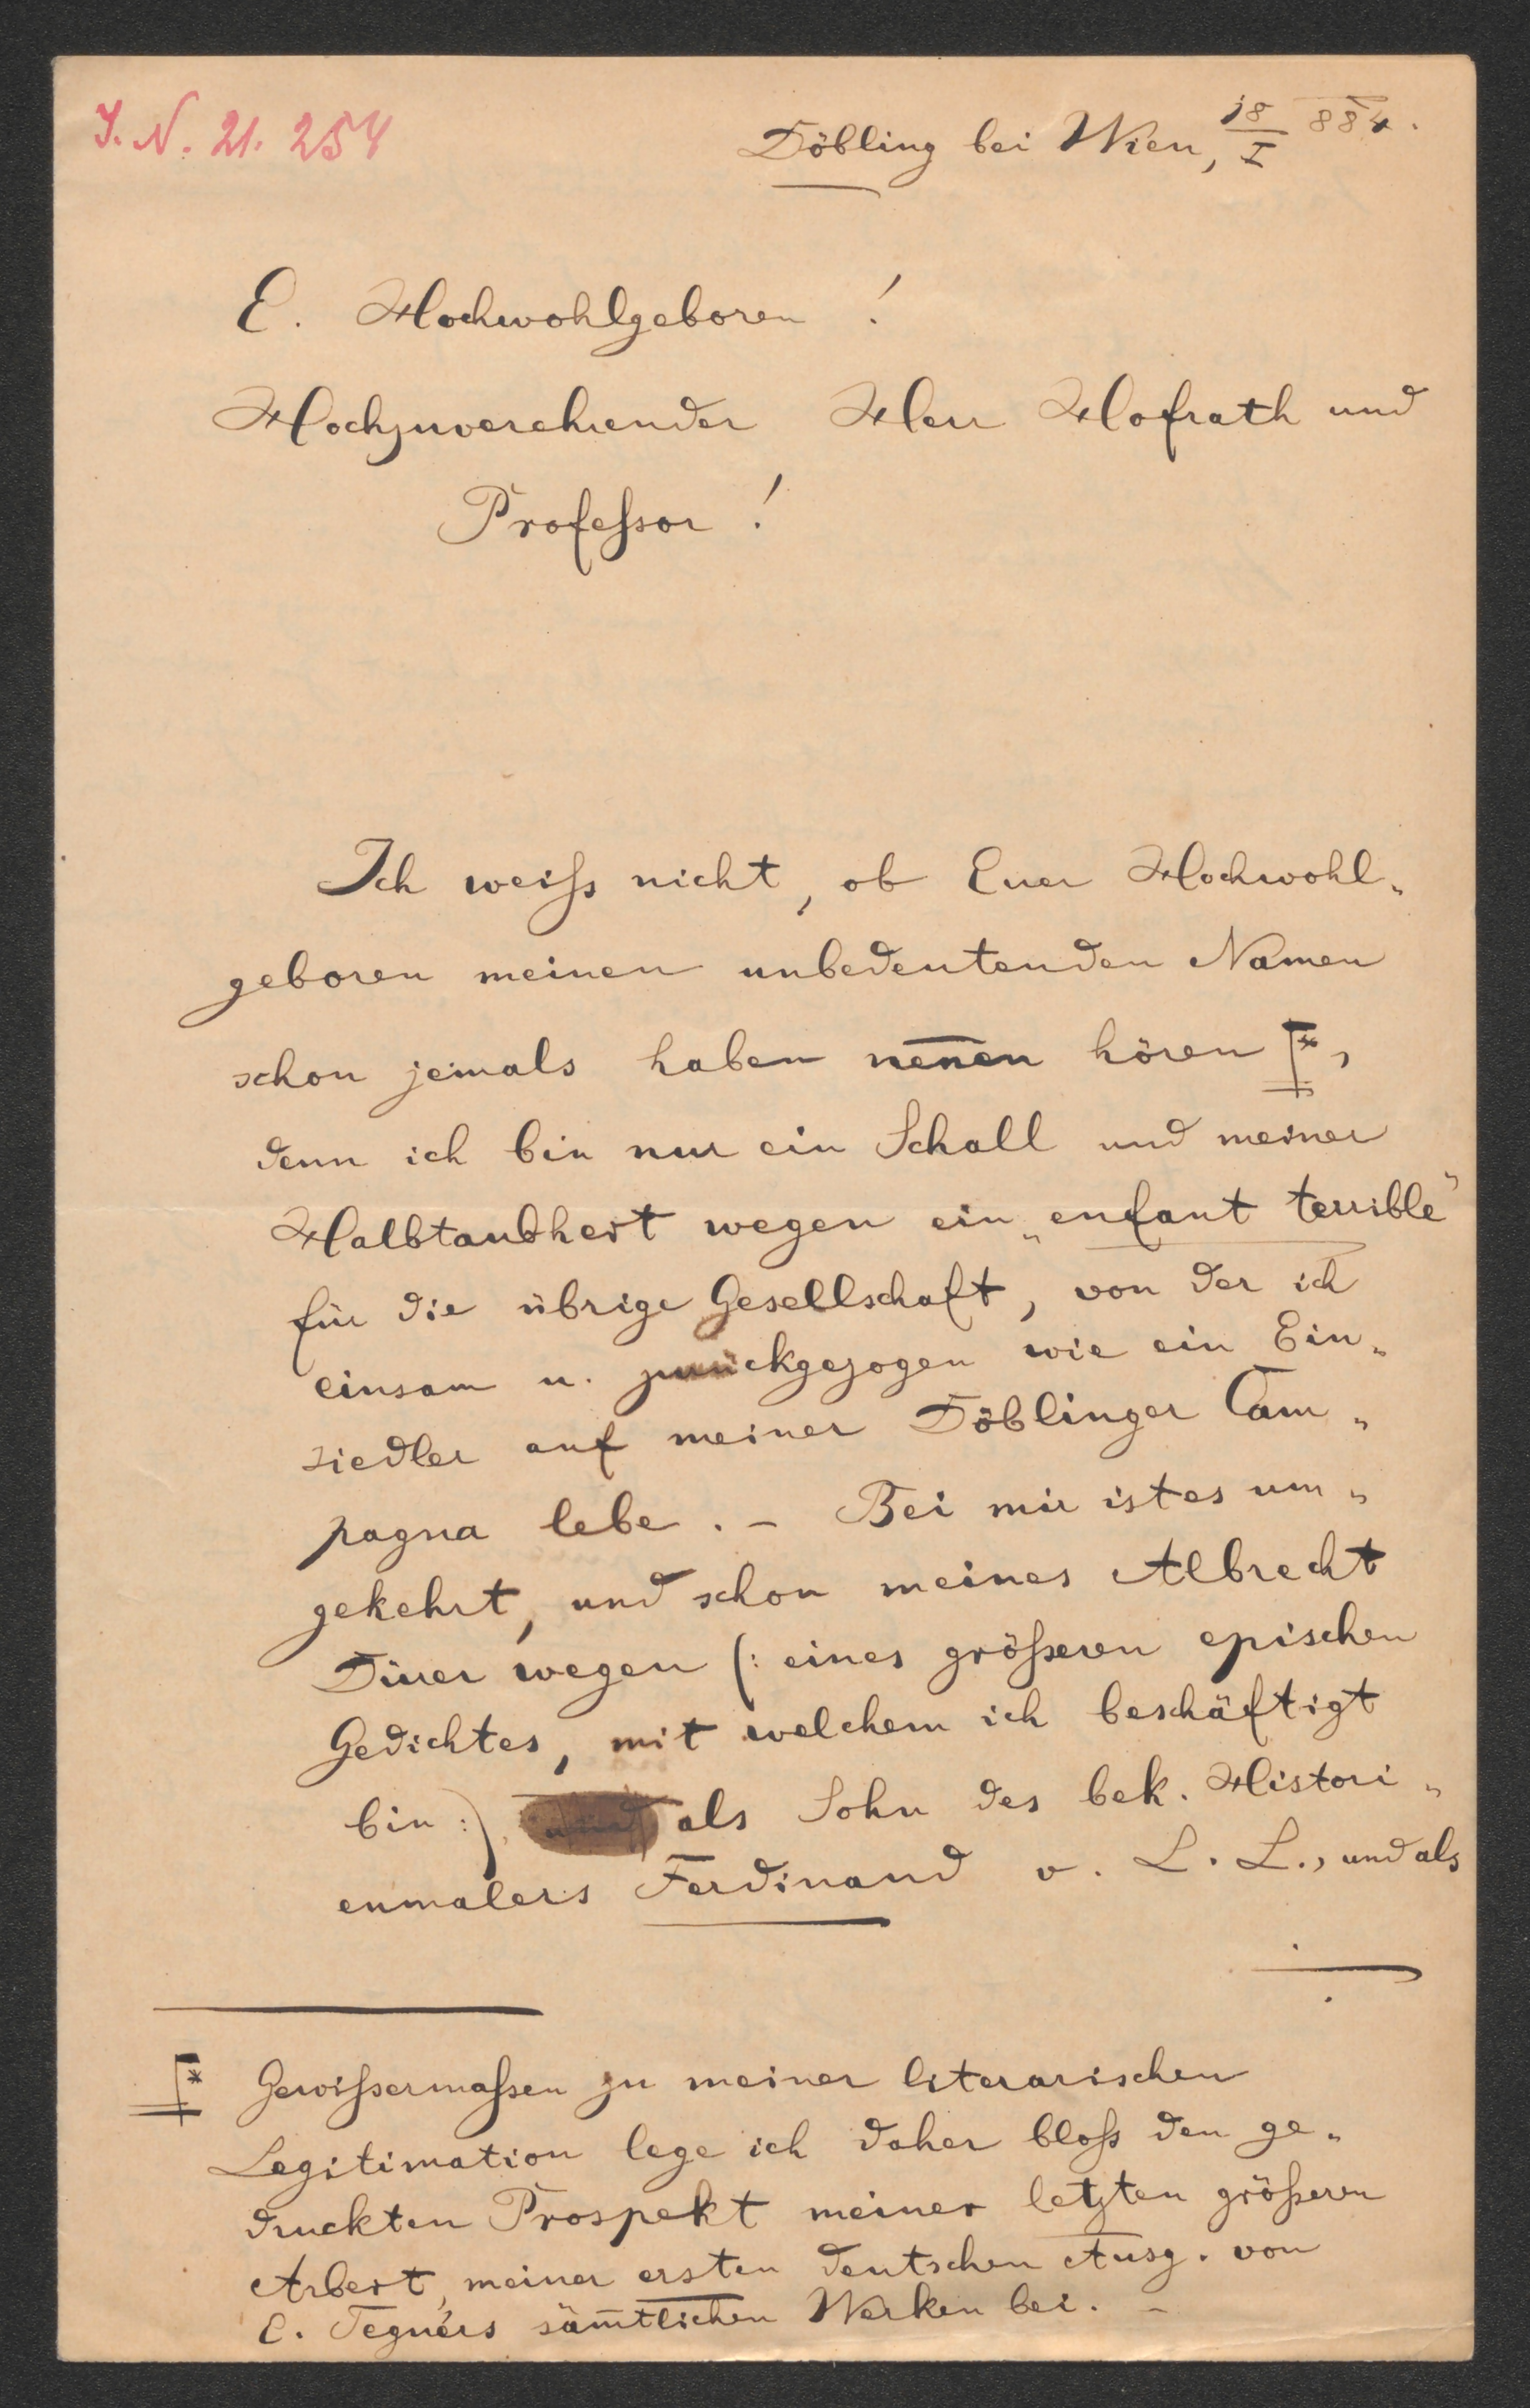 J. N. 21. 254
Döbling bei Wien, 18/I 884.
E. Hochwohlgeboren !
Hochzuverehrender Herr Hofrath und
Professor !
Ich weiss nicht, ob Euer Hochwohl„
geboren meinen unbedeutenden Namen
schon jemals haben neñen hören *,
denn ich bin nur ein Schall und meiner
Halbtaubheit wegen ein „enfant terrible“
für die übrige Gesellschaft, von der ich
einsam u. zurückgezogen wie ein Ein„
siedler auf meiner Döblinger Cam„
pagna lebe. – Bei mir ist es um„
gekehrt, und schon meines Albrecht
Dürer wegen (: eines größeren epischen
Gedichtes, mit welchem ich beschäftigt
bin :), als Sohn des bek. Histori„
enmalers Ferdinand v. L. L., und als
* Gewissermassen zu meiner literarischen
Legitimation lege ich daher bloss den ge„
druckten Prospekt meiner letzten größeren
Arbeit, meiner ersten deutschen Ausg. von
E. Tegnérs säm̄tlichen Werken bei. –